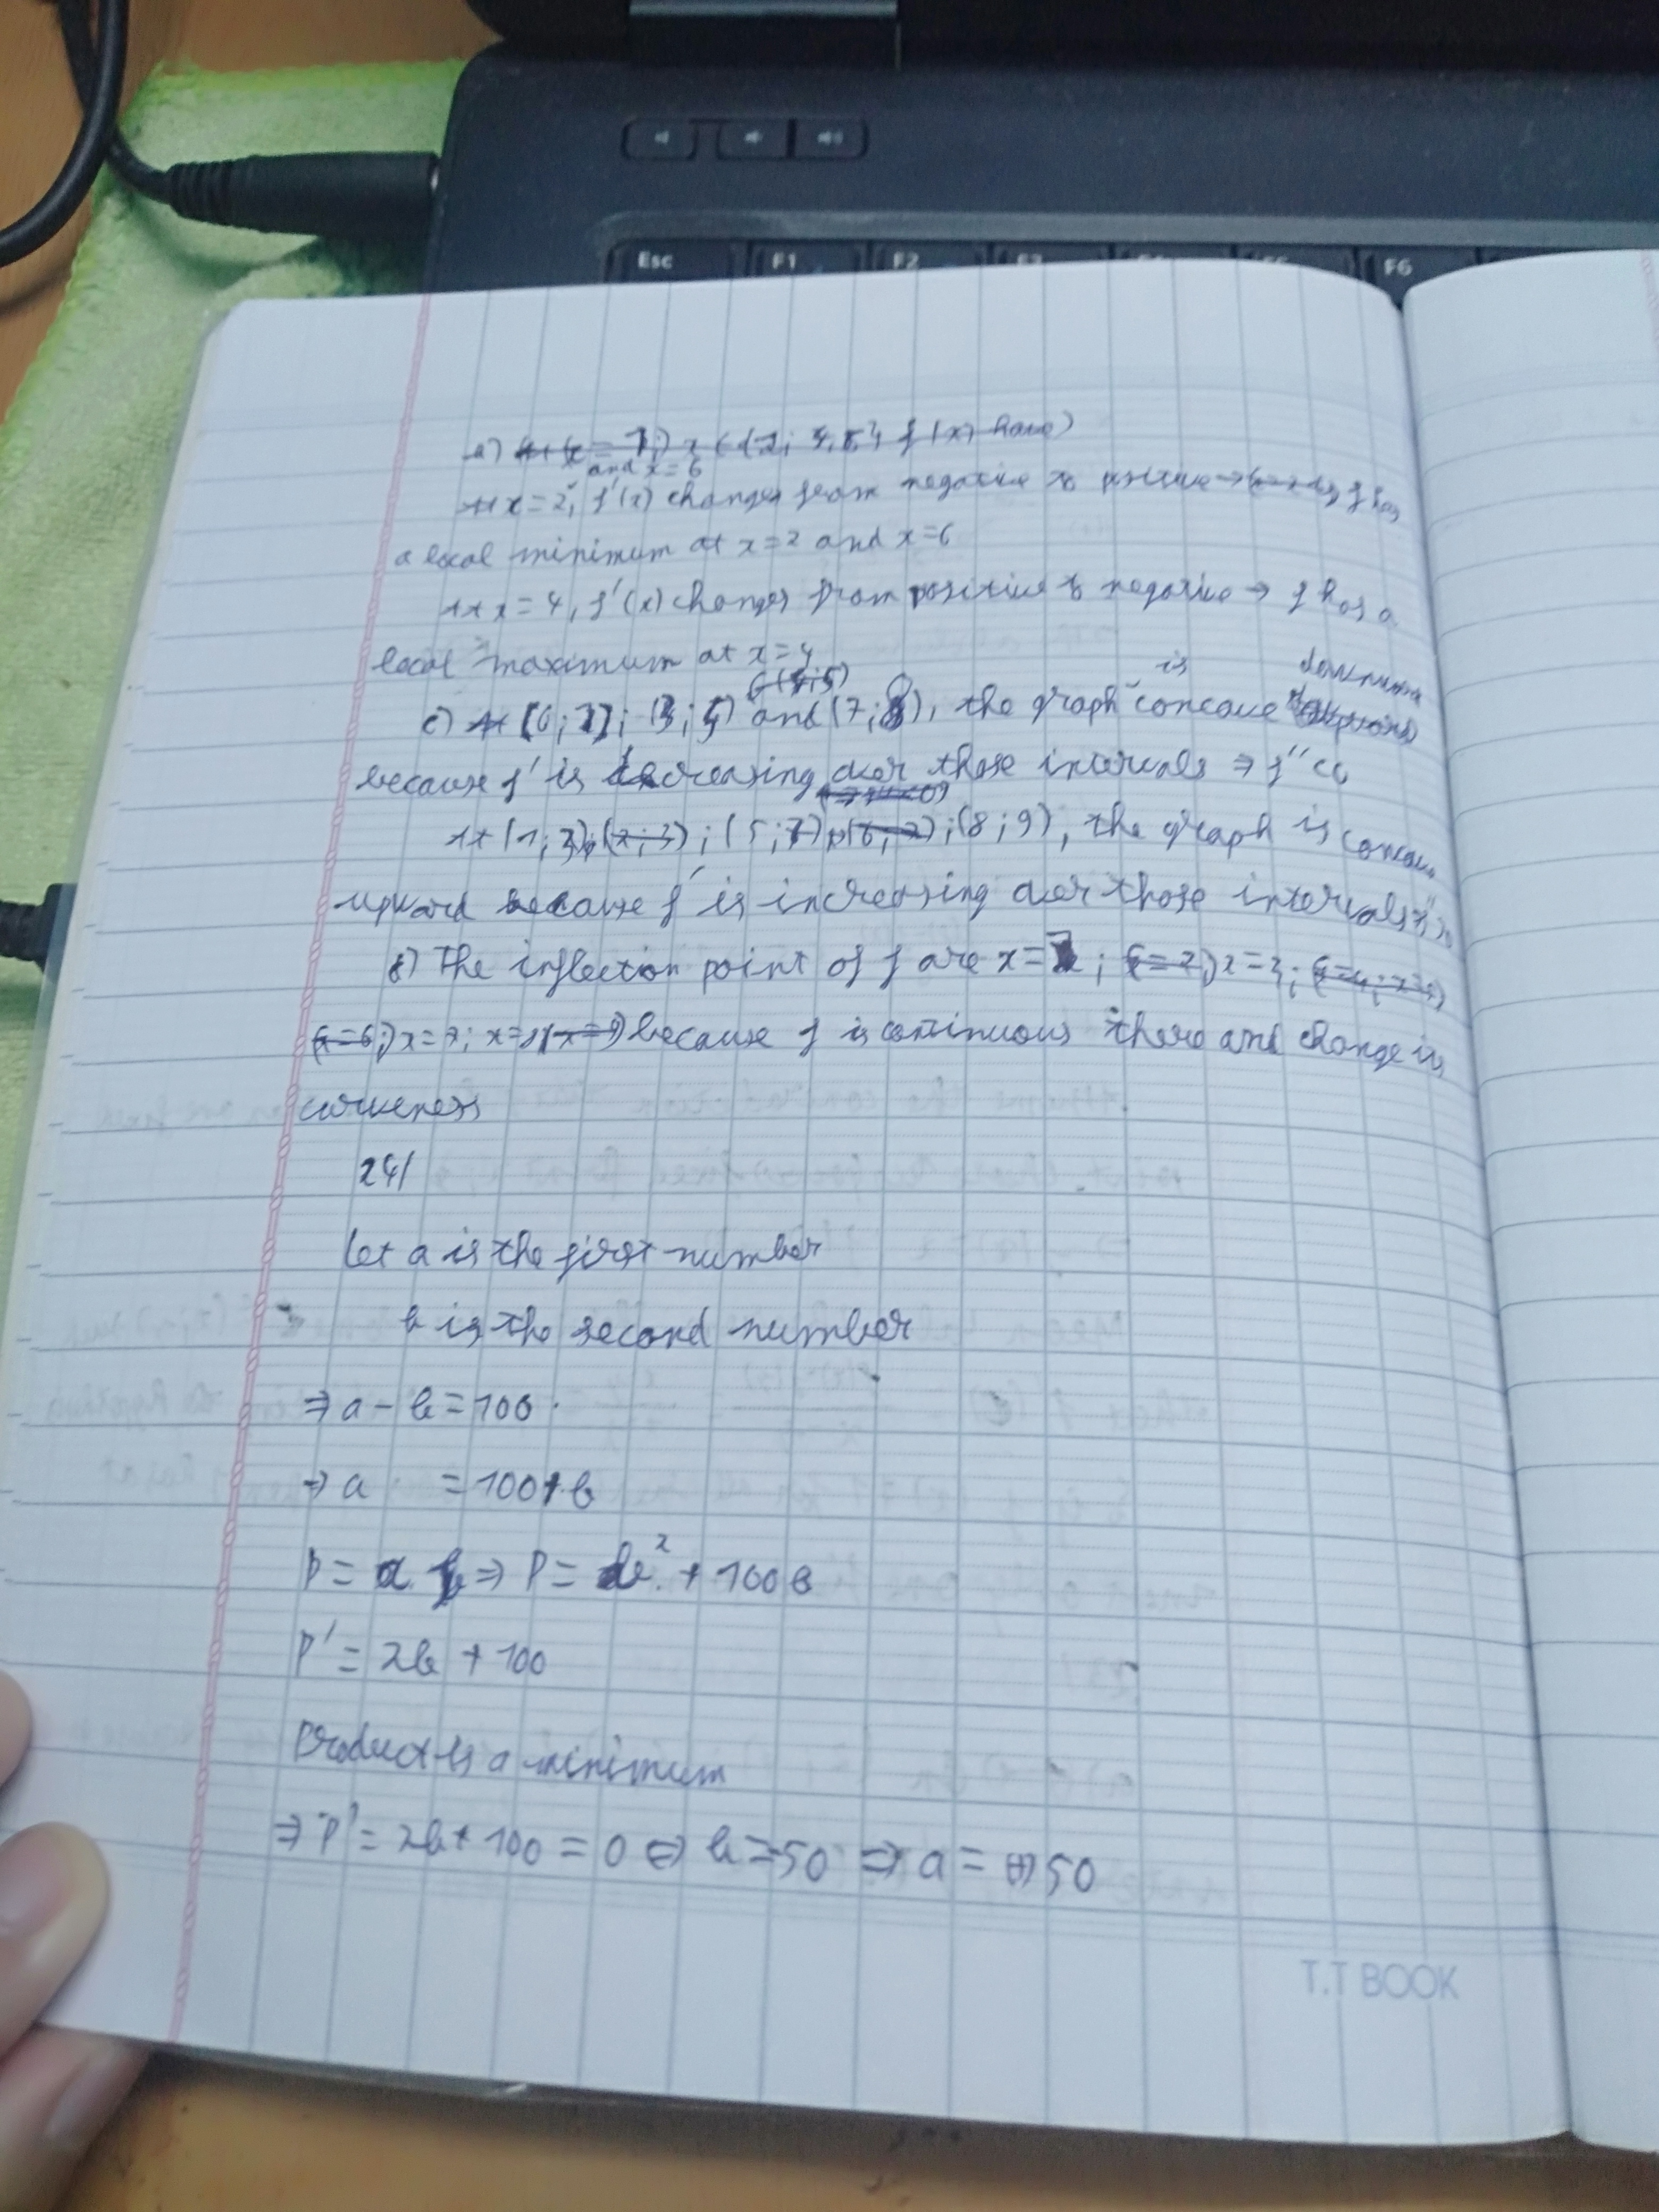 Esc F1 F2 F6
and x=6
x=2, f'(x) changes from negative to positive → f has
a local minimum at x=2 and x=6
x=4, f'(x) changes from positive to negative → f has a
local maximum at x=4
is
c) and (7;8), the graph concave
because f' is decreasing over those intervals ⇒ f''
(1;3); (5;7); (8;9), the graph is
upward because f' is increasing over those intervals
The inflection point of f are x= ; x=3;
x=7; because f is continuous there and change in
24/
Let a is the first number
b is the second number
⇒ a - b = 100
⇒ a = 100 + b
P = a.b ⇒ P = b² + 100b
P' = 2b + 100
Product is a minimum
⇒ P' = 2b + 100 = 0 ⇔ b = -50 ⇒ a = 50
T.T BOOK